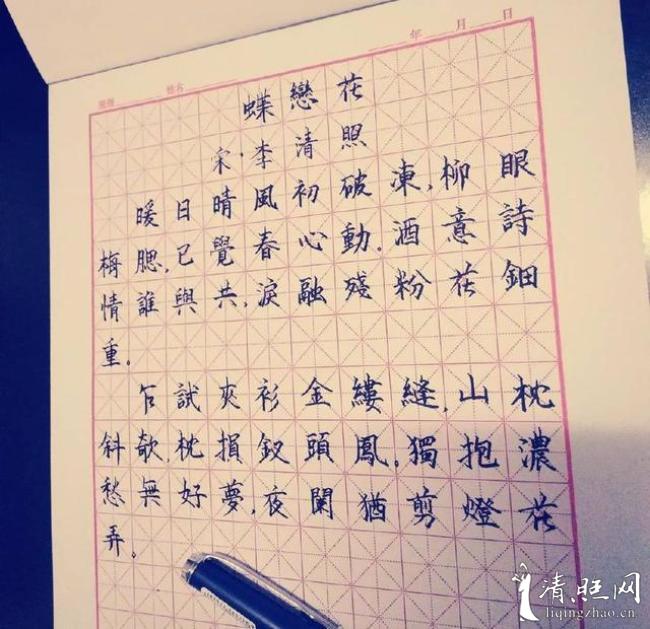 年 月 日
班级 姓名
蝶戀花
宋·李清照
暖日晴風初破凍,柳眼
梅腮,已覺春心動。酒意詩
情誰與共,淚融殘粉花鈿
重。
乍試夾衫金縷縫,山枕
斜欹,枕損釵頭鳳。獨抱濃
愁無好夢,夜闌猶剪燈花
弄。
清照网
liqingzhao.cn